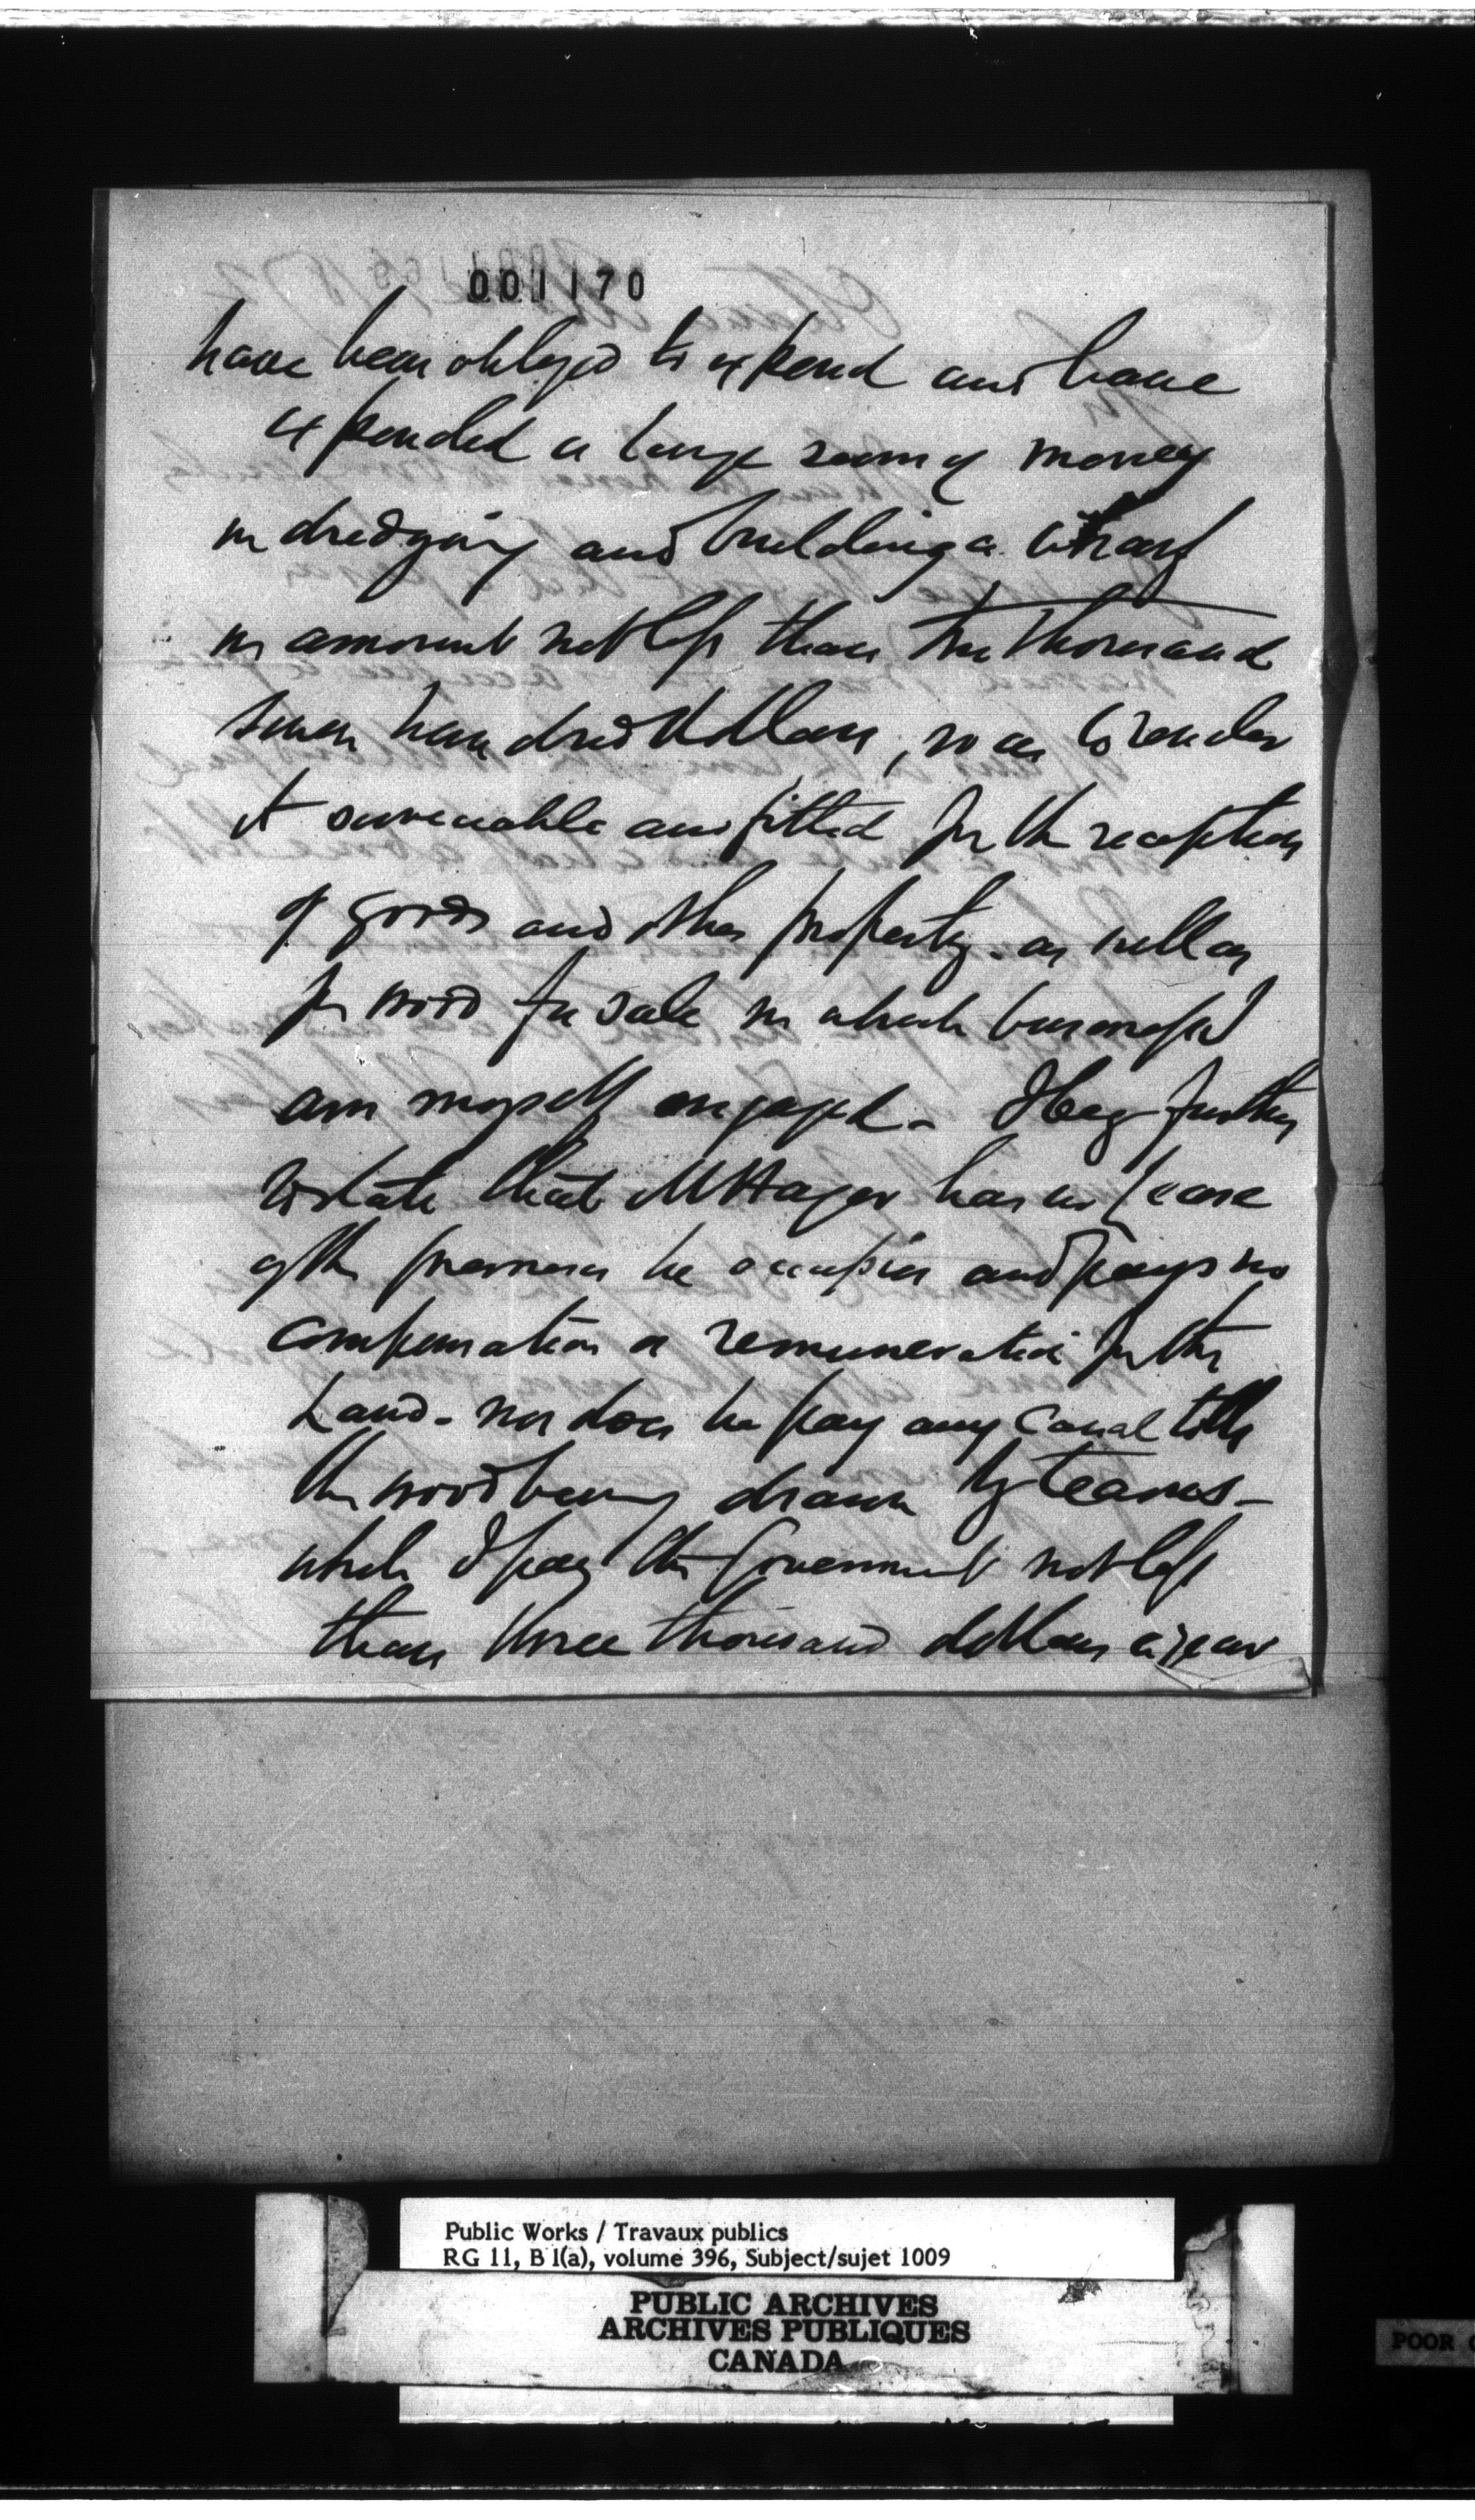 001170
have been obliged to expend and have
expended a large sum of money
in dredging and building a wharf
in amount not less than two thousand
seven hundred dollars, so as to render
it serviceable and fitted for the reception
of goods and other property - as well as
for wood for sale in which business I
am myself engaged - I beg further
to state that Mr Hager has no lease
of the premises he occupies and pays no
compensation or remuneration for the
Land - nor does he pay any Canal tolls
the wood being drawn by teams -
while I pay the Government not less
than three thousand dollars a year
Public Works / Travaux publics
RG 11, B 1(a), volume 396, Subject/sujet 1009
PUBLIC ARCHIVES
ARCHIVES PUBLIQUES
CANADA
POOR